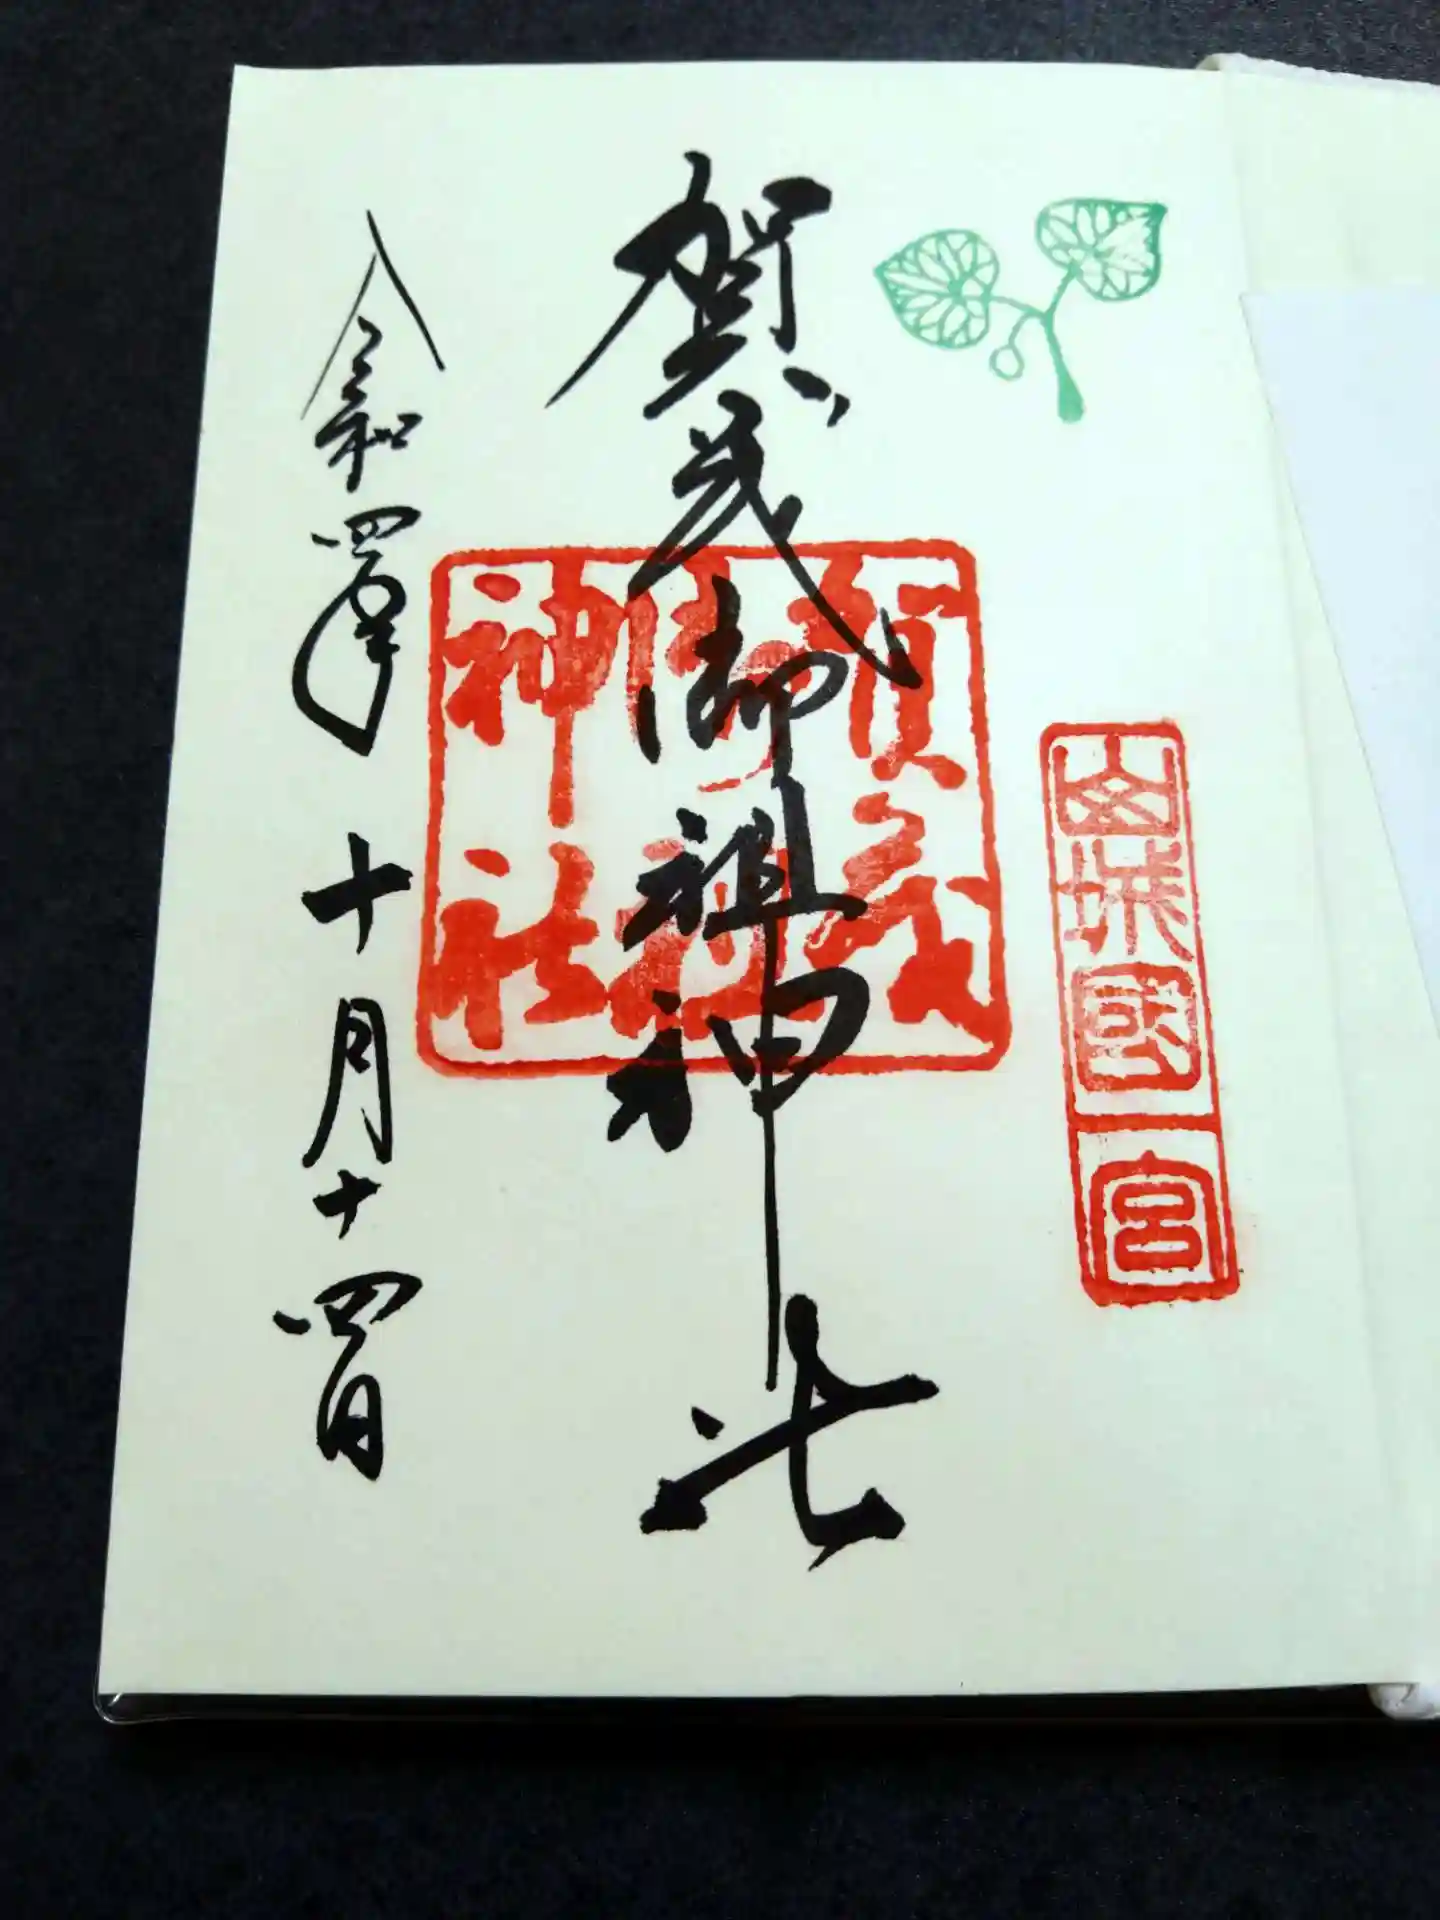 山城國
一宮
賀茂御祖神社
賀茂
御祖
神社
令和四年 十月十四日